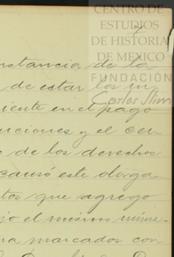 CENTRO DE
ESTUDIOS
DE HISTORIA
DE MEXICO
FUNDACIÓN
Carlos Slim
nstancia de la
de estar los in
iente en el pago
uciones y el cer
de los derechos
causó este otorga
tos que agrego
jo el mismo núme
na marcados con